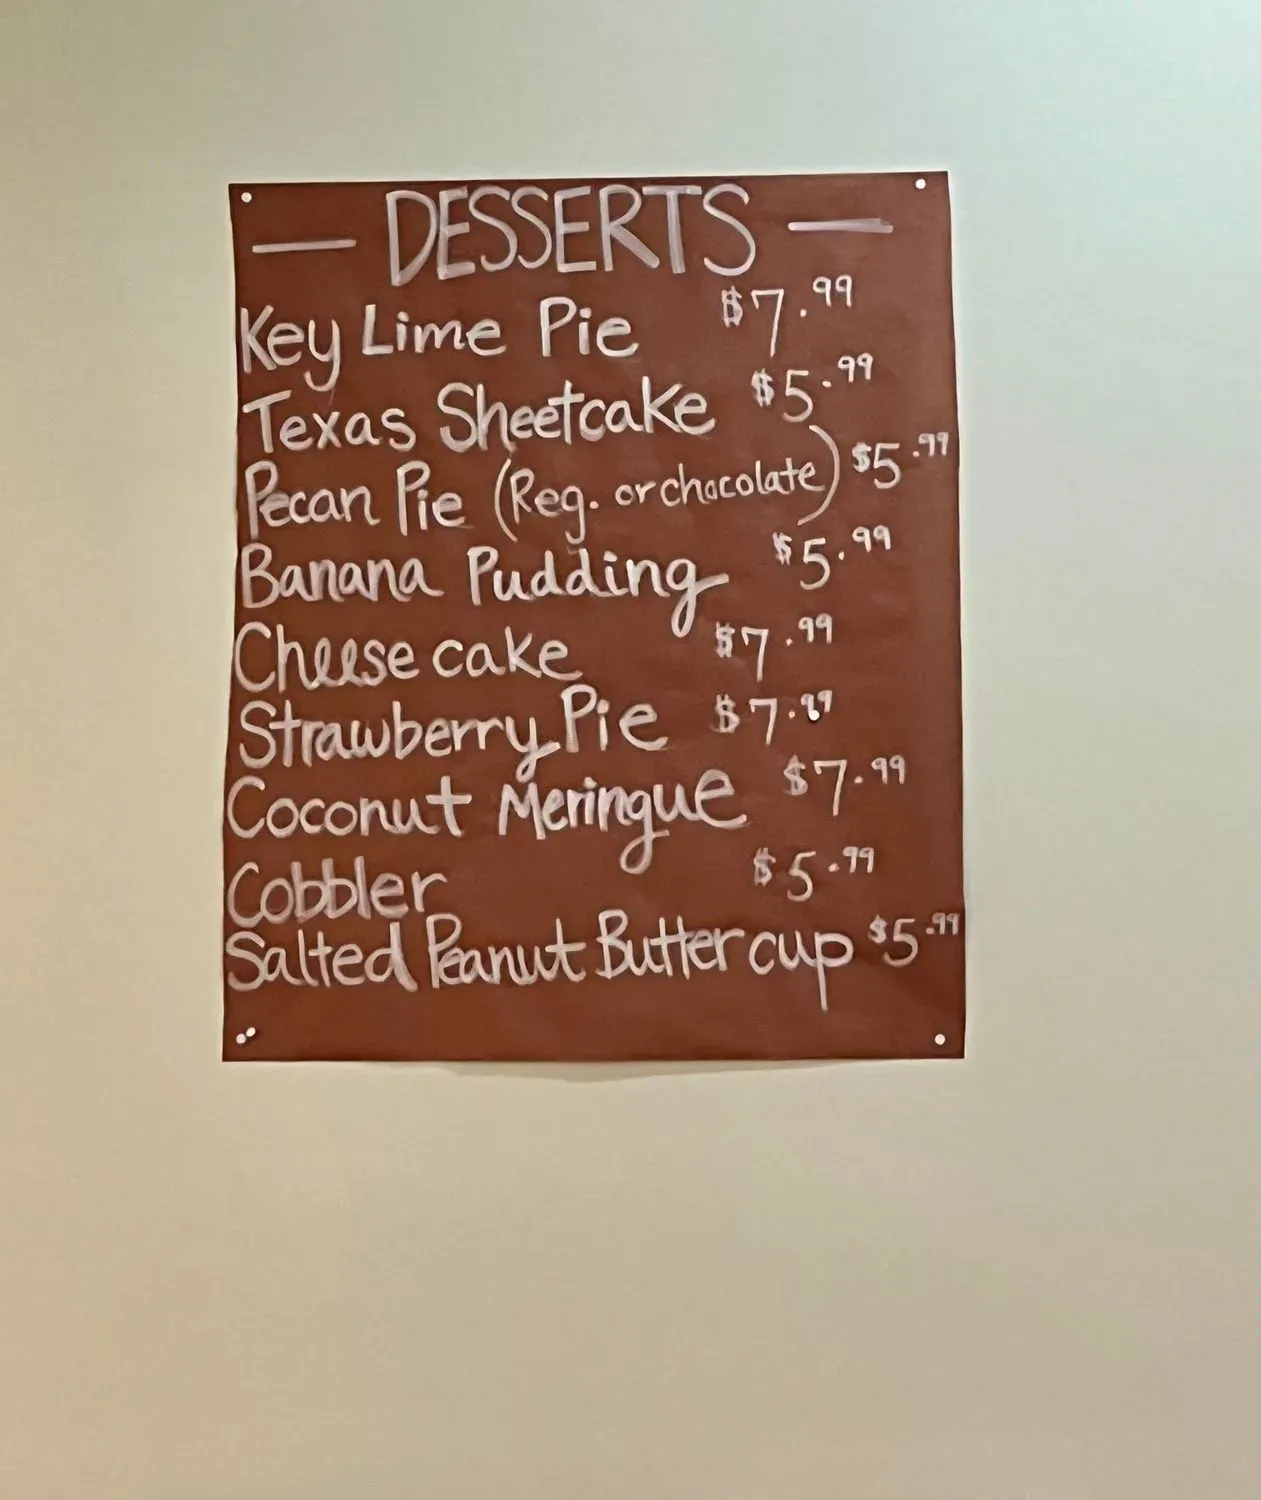 — DESSERTS —
Key Lime Pie $7.99
Texas Sheetcake $5.99
Pecan Pie (Reg. or chocolate) $5.99
Banana Pudding $5.99
Cheese cake $7.99
Strawberry Pie $7.99
Coconut Meringue $7.99
Cobbler $5.99
Salted Peanut Butter cup $5.99